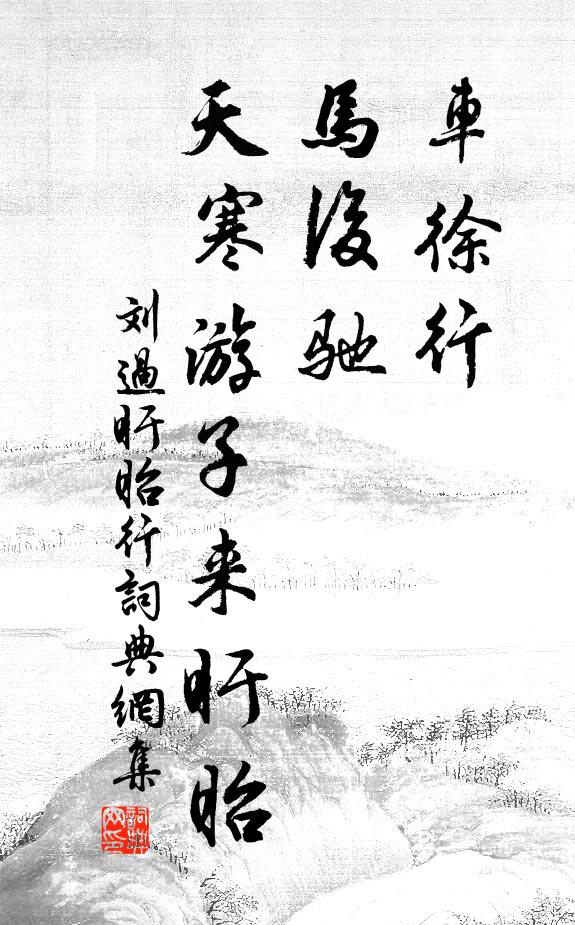 車徐行
馬後馳
天寒游子来盱眙
刘過盱眙行詞典網集
詞典
网印